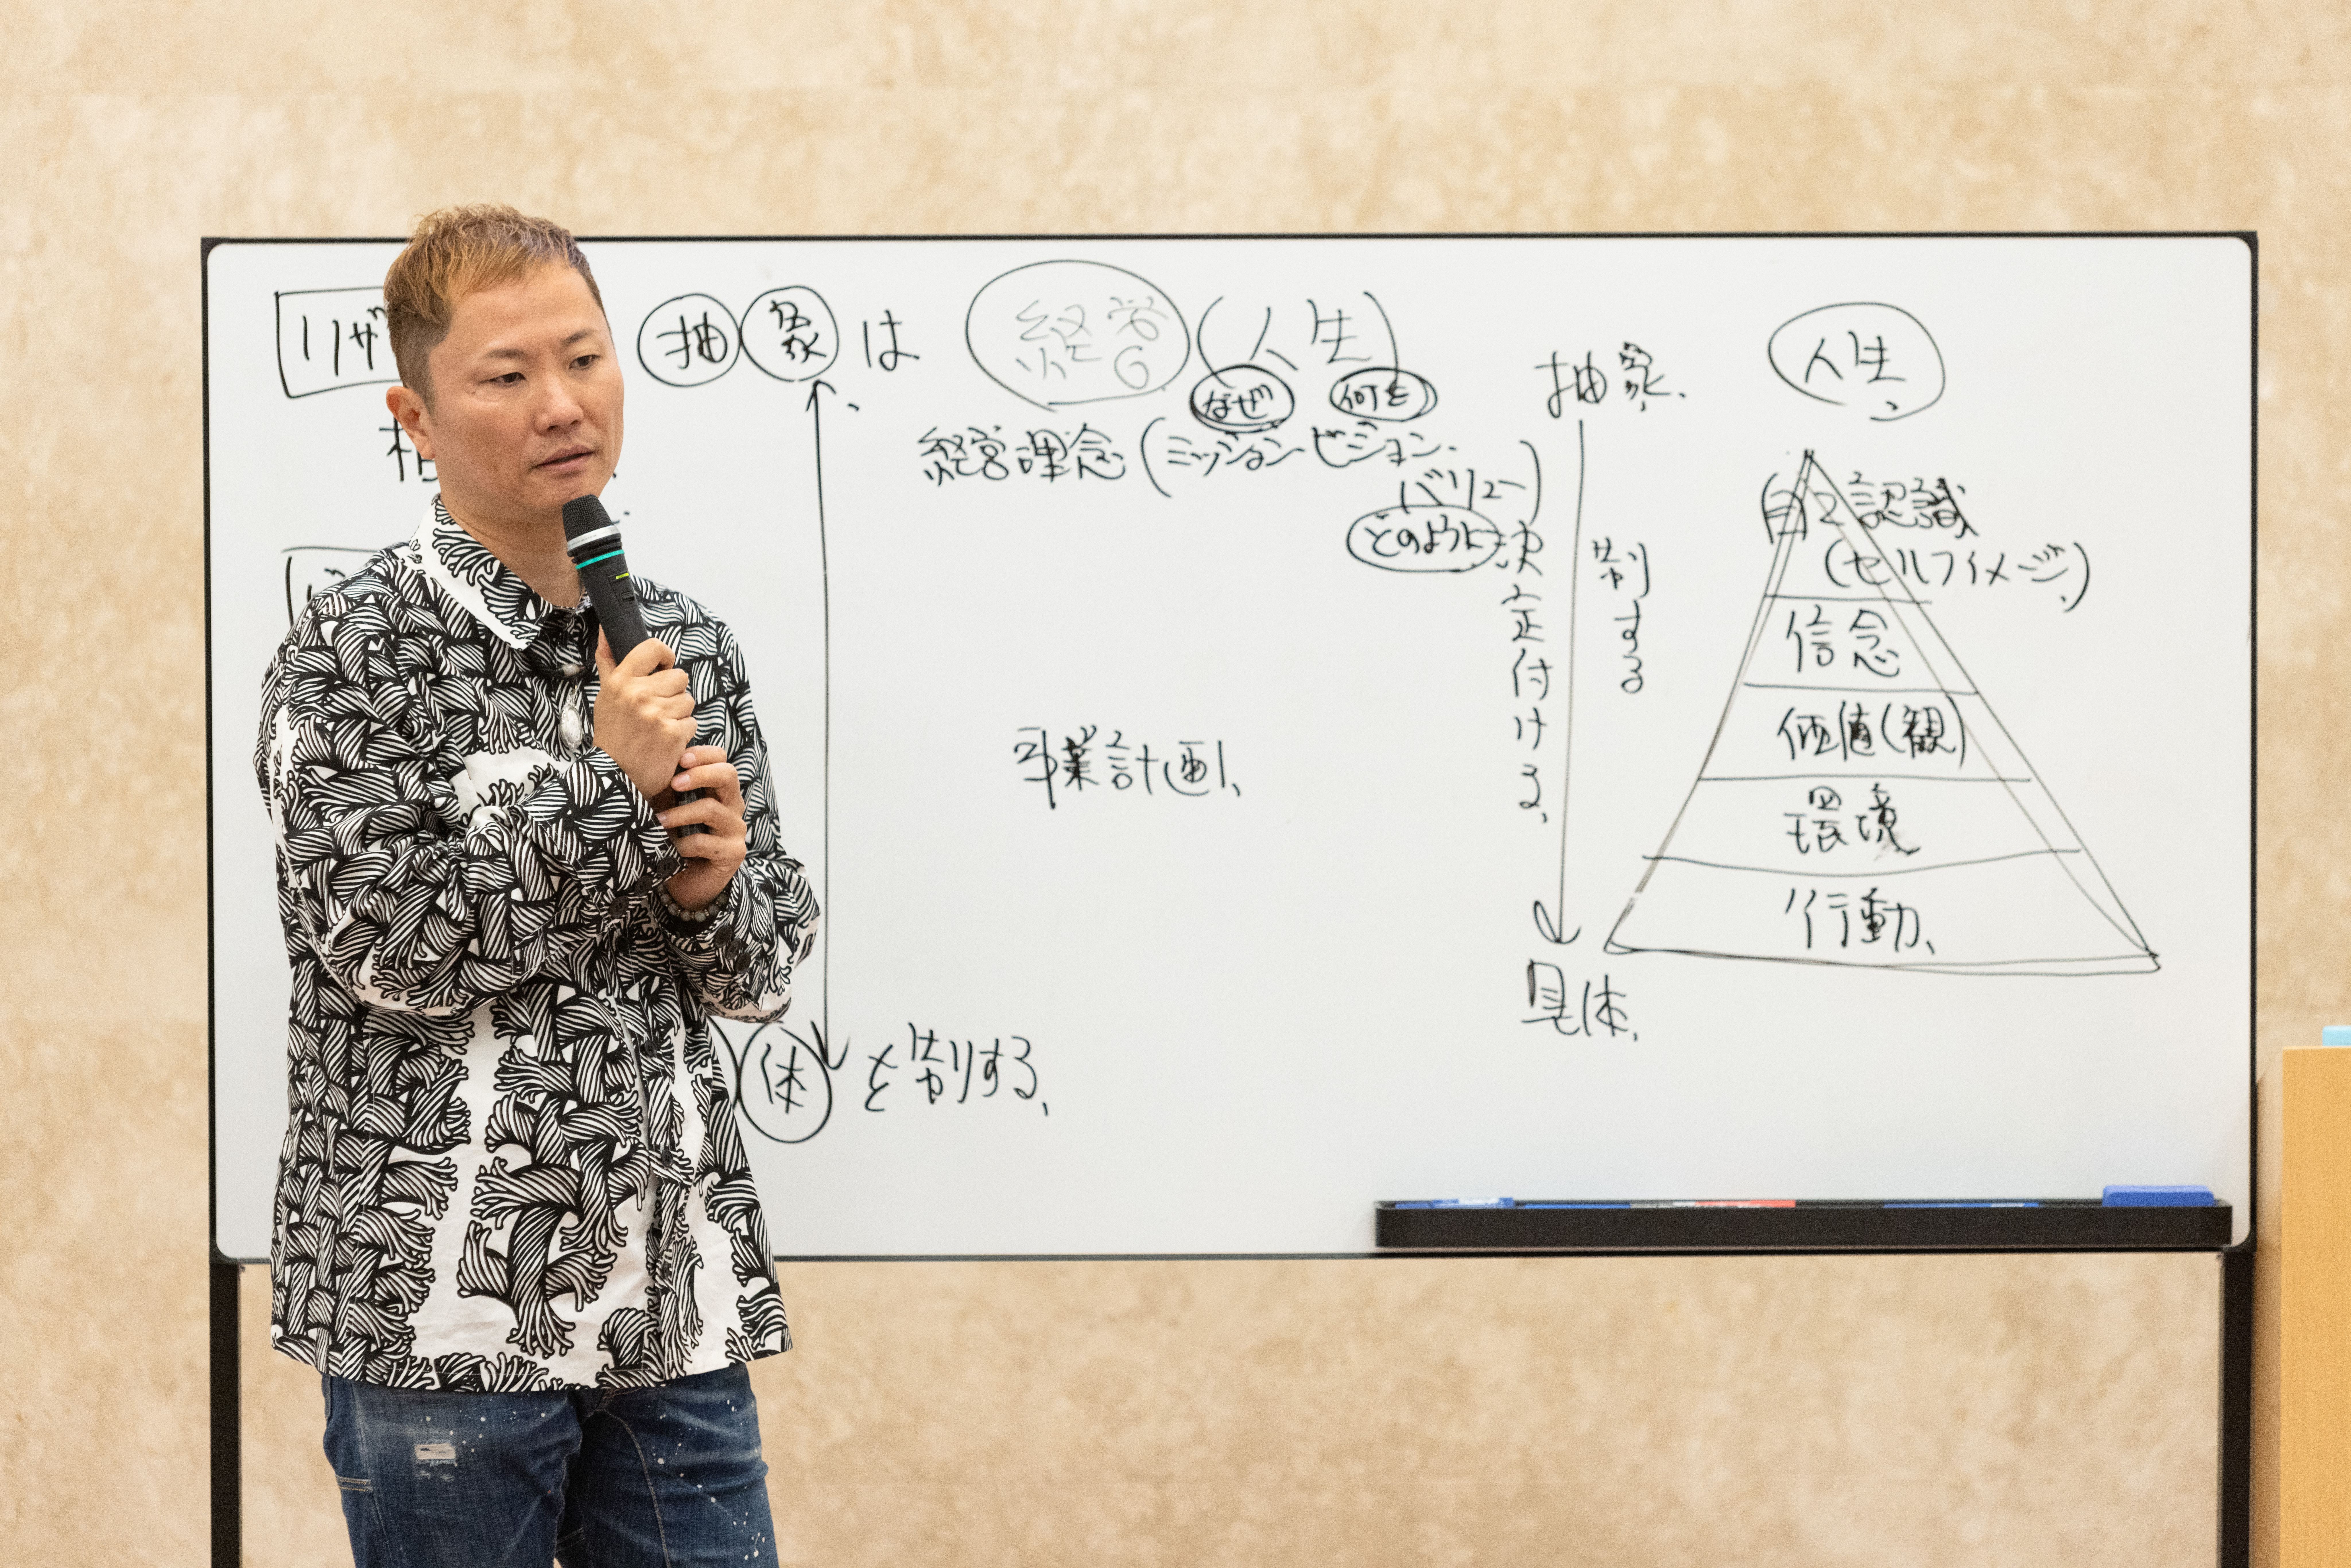 リザ
抽象は
経営(人生)
なぜ 何を
経営理念(ミッション・ビジョン・
バリュー)
どのように
決定付ける、
事業計画、
体を制する、
抽象、
制する
具体、
人生、
自己認識
(セルフイメージ)
信念
価値(観)
環境
行動、